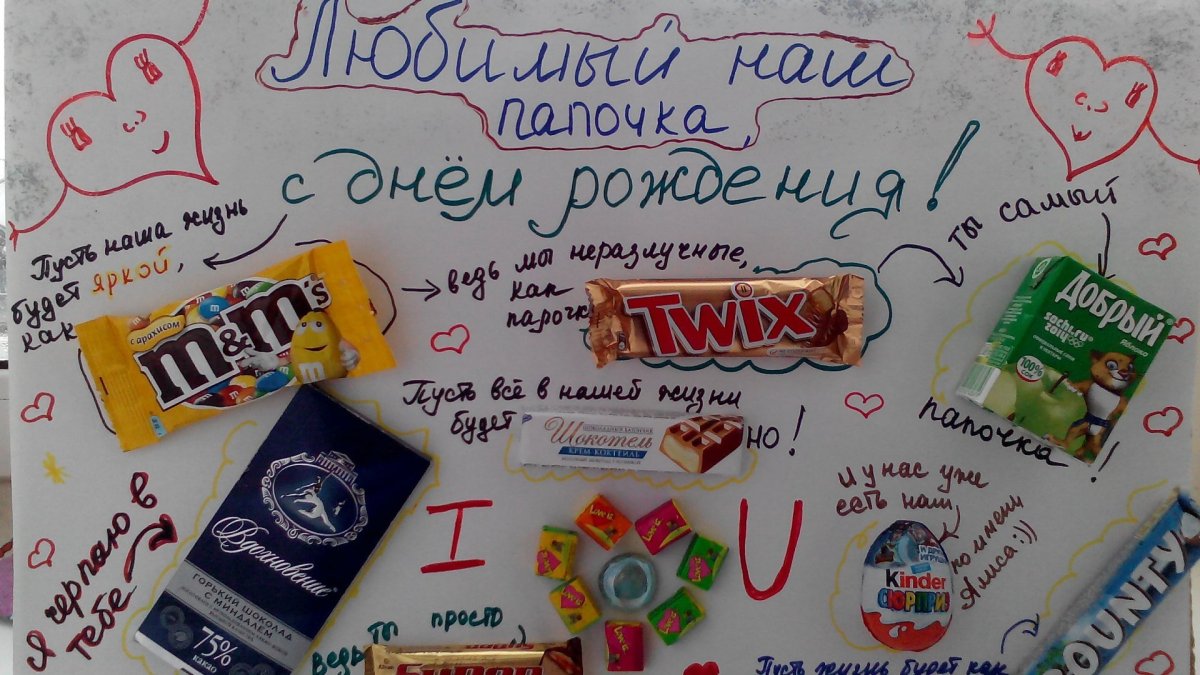 Любимый наш
папочка,
с днём рождения!
Пусть наша жизнь
будет яркой,
как
с арахисом
m&m's
ведь мы неразлучные,
как
парочка
TWIX
ты самый
Добрый
sochi.ru
2014
яблоко
100%
сок
папочка!
Пусть всё в нашей жизни
будет
Шокотель
КРЕМ-КОКТЕЙЛЬ
но!
Я черпаю в
тебе
Вдохновение
ГОРЬКИЙ ШОКОЛАД
С МИНДАЛЕМ
75%
какао
I
Love is
Love is
U
И у нас уже
есть наш
Kinder
СЮРПРИЗ
по имени
Алиса:))
BOUNTY
ты просто
ведь
Пусть жизнь будет как